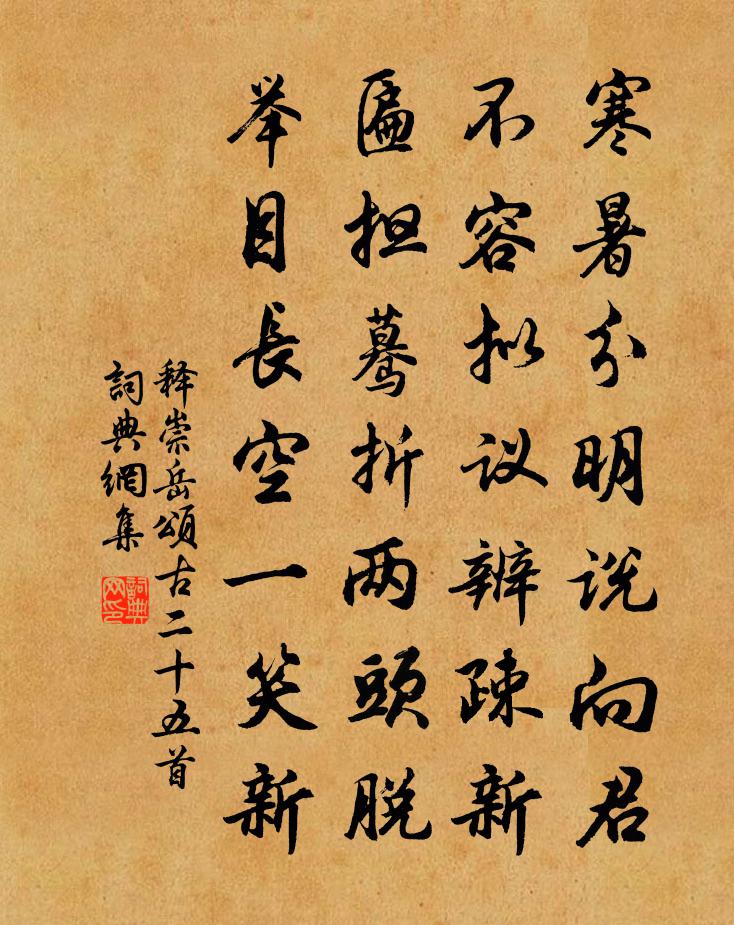 寒暑分明说向君
不容拟议辨疎新
匾担蓦折两頭脱
举目長空一笑新
释崇岳頌古二十五首
詞典網集
詞典网印